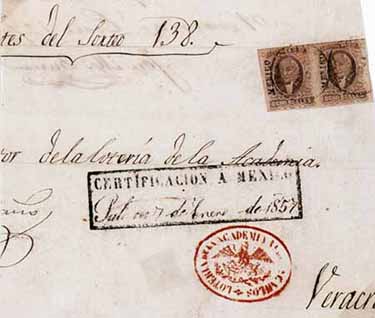 tes del Sorteo 138.
MEXICO
or de la lotería de la Academia.
CERTIFICACION A MEXICO
Sale en 7 de Enero de 1857
LOTERIA DE LA ACADEMIA S. CARLOS
Veracr